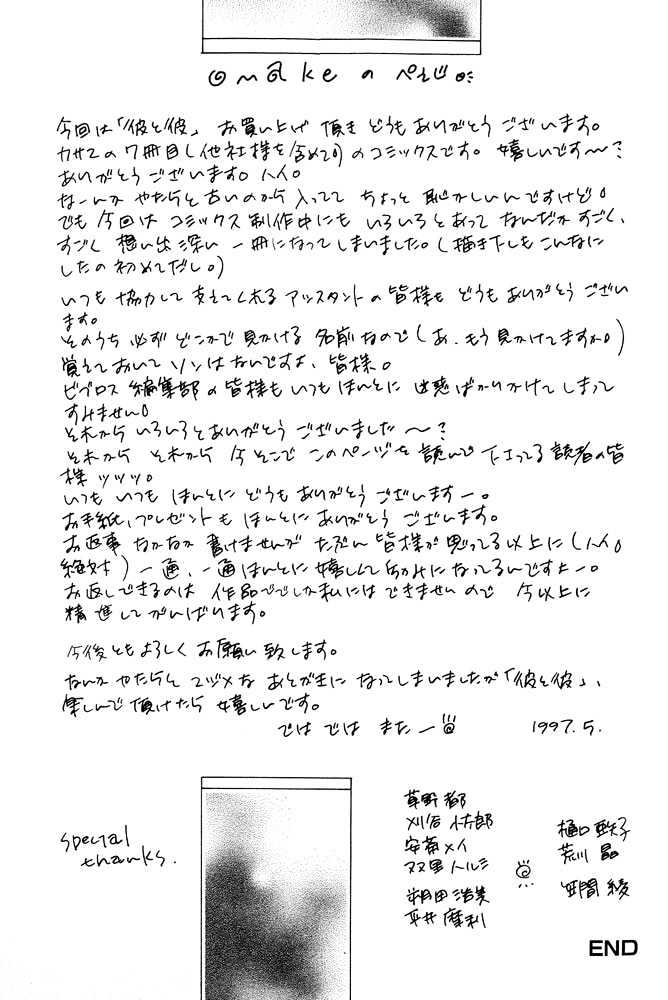 omakeのぺえじ
今回は「彼と彼」お買い上げ頂きどうもありがとうございます。
の7冊目(他社様を含めて)のコミックスです。嬉しいです〜?
ありがとうございます。ハイ。
なーんかやたらと古いのから入ってて ちょっと恥かしいんですけど。
でも今回はコミックス制作中にもいろいろとあってなんだかすごく、
すごく想い出深い一冊になってしまいました。(描き下しもこんなに
したの初めてだし。)
いつも協力して支えてくれるアシスタントの皆様もどうもありがとうござい
ます。
そのうち必ずどこかで見かける名前なので(あ、もう見かけてますか。)
覚えておいてソンはないですよ、皆様。
ビブロス編集部の皆様もいつもほんとに迷惑ばかりかけてしまって
すみません。
それからいろいろとありがとうございました〜?
それから それから 今そこでこのページを読んで下さってる読者の皆
様ッッッ。
いつもいつもほんとにどうもありがとうございますー。
お手紙、プレゼントもほんとにありがとうございます。
お返事なかなか書けませんがたぶん皆様が思ってる以上に(ハイ。
絶対)一通、一通ほんとに嬉しくて励みになってるんですよー。
お返しできるのは作品ででしか私にはできませんので 今以上に
精進してがんばります。
今後ともよろしくお願い致します。
なんかやたらとマジメなあとがきになってしまいましたが「彼と彼」、
楽しんで頂けたら嬉しいです。
ではでは またー 1997.5.
special
thanks.
草野都
刈谷小太郎
安斎メイ
双里ハルミ
朔田浩美
平井摩利
樋口亜子
荒川晶
笠間綾
END